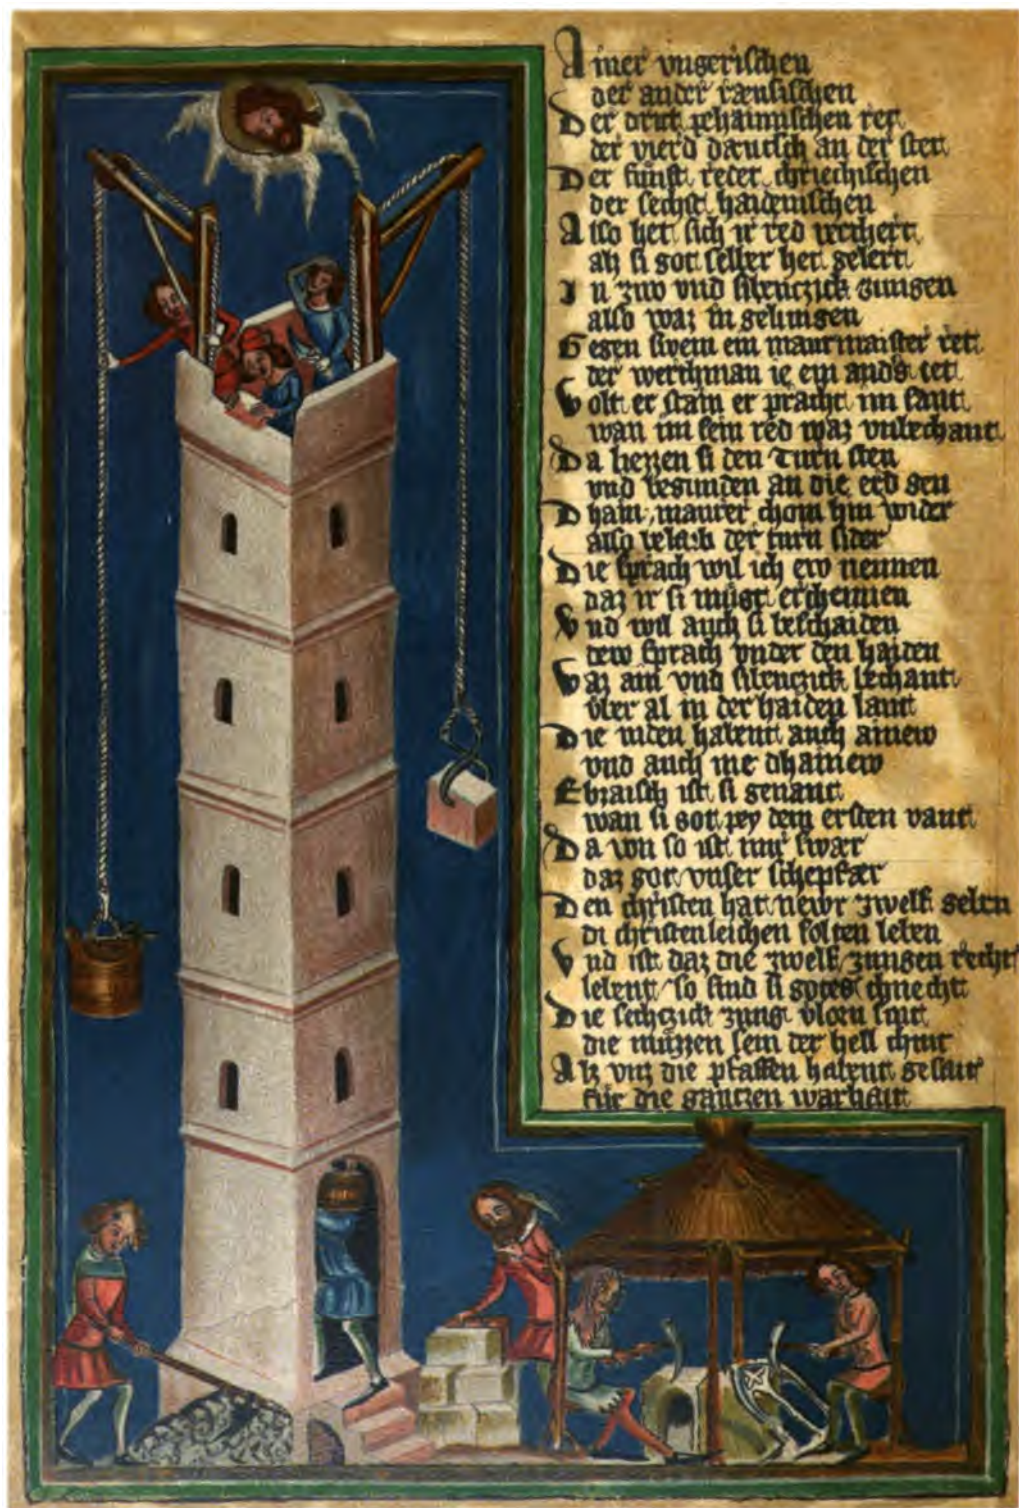 Ainer vngerischen
der ander ræusischen
Der drit pehaimischen ret
der vierd dæutsch an der stet
Der fünft redet chriechischen
der sechst haidenischen
Also het sich ir red verchert
alz si got selber het gelert
In zwo vnd sibenczick zungen
also waz in gelungen
Gegen swem ein maurmaister ret
der werchman ie ein anders tet
Wolt er stain er pracht im sant
wan im sein red waz vnbechant
Da liezzen si den Turn sten
vnd begunden an die erd gen
Dhain maurer chom hin wider
also belaib der turn sider
Die sprach wil ich ew nennen
daz ir si mügt erchennen
Vnd wil auch si beschaiden
dew sprach vnder den haiden
Waz ain vnd sibenczick bechant
vber al in der haiden lant
Die iuden habent auch ainew
vnd auch me dhainew
Ebraisch ist si genant
wan si got pey dem ersten vant
Da von so ist mir swær
daz got vnser schepfær
Den christen hat newr zwelf geben
di christenleichen solten leben
Vnd ist daz die zwelf zungen recht
lebent so sind si gotes chnecht
Die sechczick zung vlorn sint
die müzzen sein der hell chint
Alz vnz die pfaffen habent gesait
für die gantzen warhait